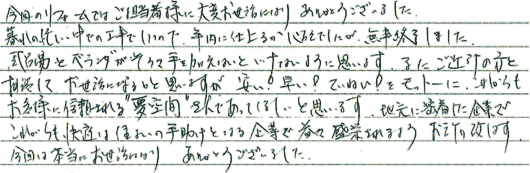 今回のリフォームではご担当者様に大変お世話になり ありがとうございました。
暮れの忙しい中での工事でしたので、年内に仕上るか心配でしたが、無事終了しました。
とベランダがそろそろ手を加えないといけないように思います。またご近所の方と
相談して、お世話になるかと思いますが 安い!早い!ていねい!をモットーに、これからも
お客様に信頼される"夢空間"さんであってほしいと思います。地元に密着した企業で
これからも快適な住まいの手助けとなる企業で益々盛栄されますよう お祈り致します
今回は本当にお世話になり ありがとうございました。